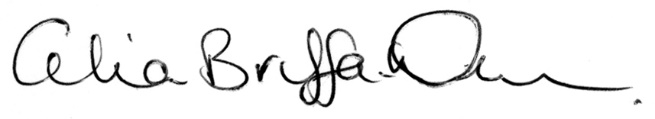 Celia Briffa